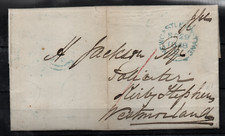 H Jackson Esq
Solicitor
Kirby Stephen
Westmorland